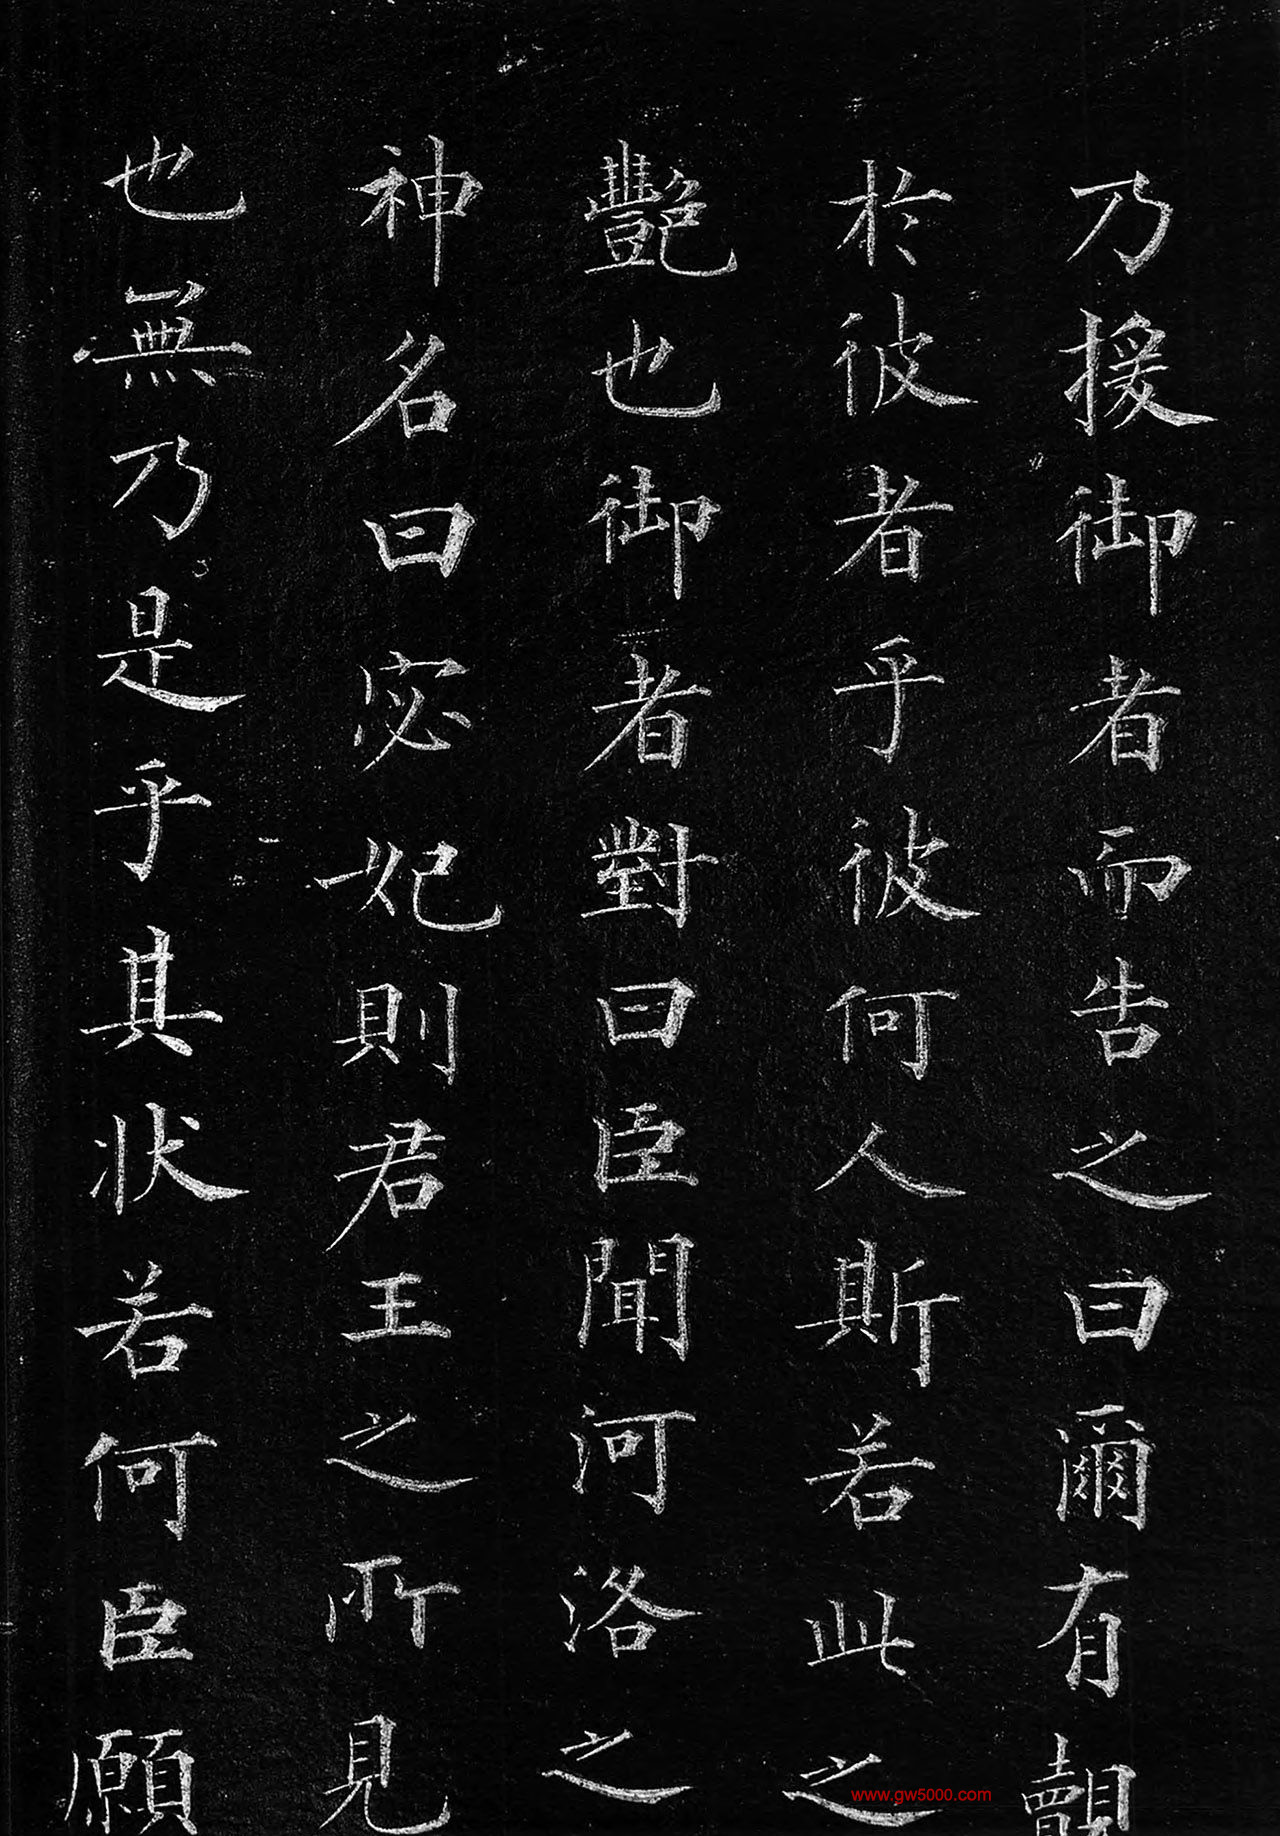 乃援御者而告之曰爾有覿
於彼者乎彼何人斯若此之
豔也御者對曰臣聞河洛之
神名曰宓妃則君王之所見
也無乃是乎其状若何臣願
www.gw5000.com